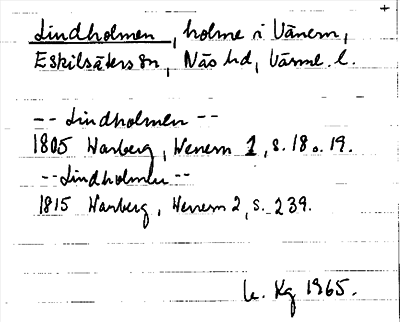 +
Lindholmen, holme i Vänern,
Eskilsäters sn, Näs hd, Värml. l.
-- Lindholmen --
1805 Warberg, Wenern 1, s. 18 o. 19.
-- Lindholmen --
1815 Warberg, Wenern 2, s. 239.
Kg 1965.